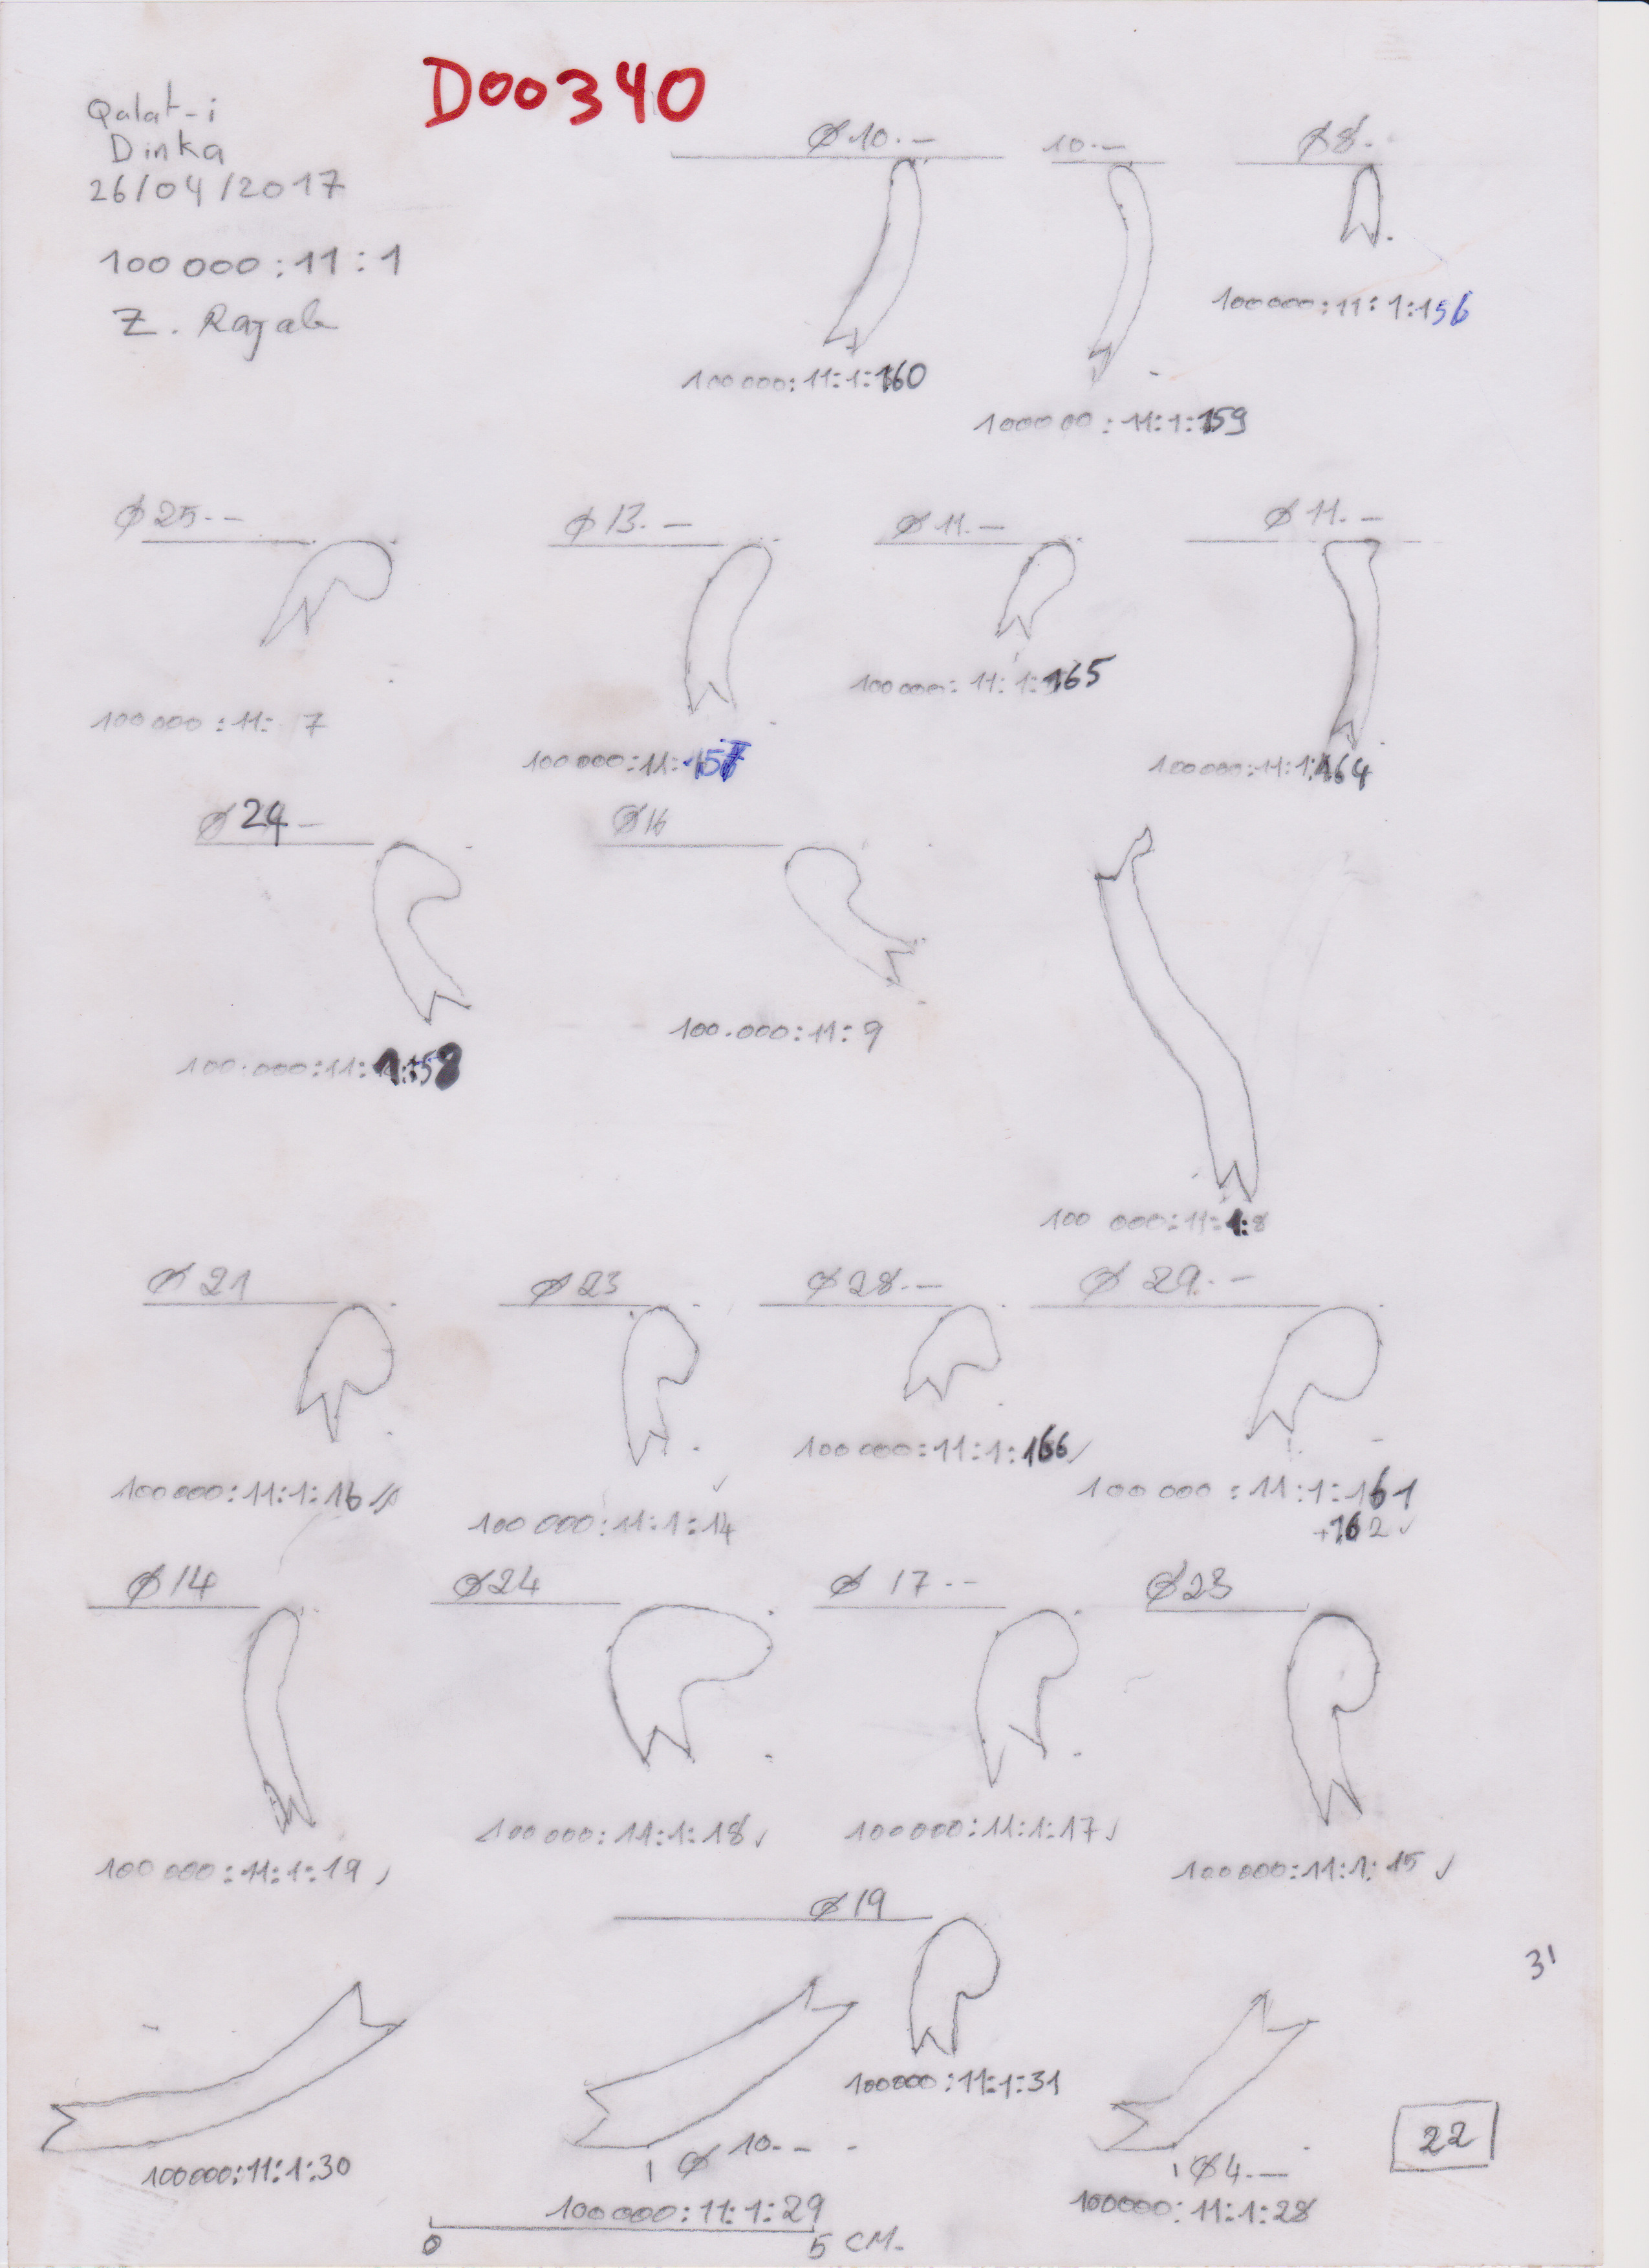 D00340
Qalat-i
Dinka
26/04/2017
100 000:11:1
Z. Rajab
Ø 10.-
10.-
Ø 8.
100000:11:1:156
100 000:11:1:160
100000:11:1:159
Ø 25.-
Ø 13.-
Ø 11.-
Ø 11.-
100 000:11: 7
100 000:11:157
100 000:11:1:165
100 000:11:1:164
Ø 24-
Ø 16
100.000:11:1:158
100.000:11:9
100 000:11:1:8
Ø 21
Ø 23
Ø 28.-
Ø 29.-
100 000:11:1:16
100 000:11:1:14
100 000:11:1:166
100 000:11:1:161
+162
Ø 14
Ø 24
Ø 17.-
Ø 23
100 000:11:1:19
100 000:11:1:18
100000:11:1:17
100000:11:1:15
Ø 19
31
100000:11:1:31
100000:11:1:30
Ø 10.-
100000:11:1:29
Ø 4.-
100000:11:1:28
22
0 5 CM.